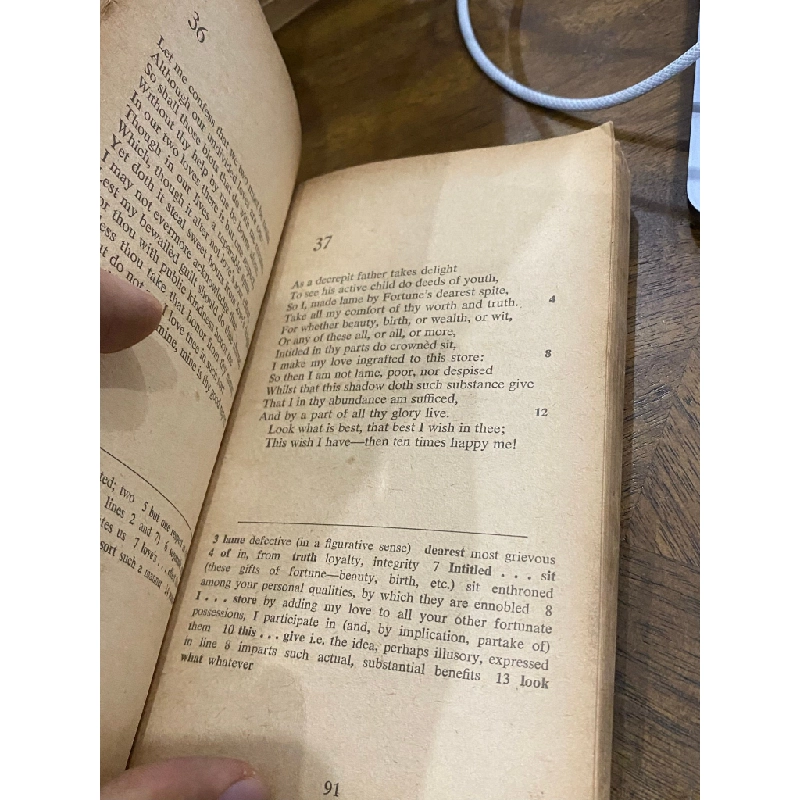 36
Let me confess that we two must be
Although our undivided loves are one
So shall those blots that do with me
Without thy help by me be borne alone
In our two loves there is but one
Though in our lives a separable
Which, though it alter not love's
Yet doth it steal sweet hours from
I may not evermore acknowledge
est my bewailèd guilt should do thee
or thou with public kindness honor me
ess thou take that honor from thy
t do not I love thee in such sort
mine, mine is thy good
ted; two 5 but one respect
lines 2 and 7) 6 separable
tes us 7 love's
sort such a manner
37
As a decrepit father takes delight
To see his active child do deeds of youth,
So I, made lame by Fortune's dearest spite,
Take all my comfort of thy worth and truth. 4
For whether beauty, birth, or wealth, or wit,
Or any of these all, or all, or more,
Intitled in thy parts do crownèd sit,
I make my love ingrafted to this store: 8
So then I am not lame, poor, nor despised
Whilst that this shadow doth such substance give
That I in thy abundance am sufficed,
And by a part of all thy glory live. 12
Look what is best, that best I wish in thee;
This wish I have—then ten times happy me!
3 lame defective (in a figurative sense) dearest most grievous
4 of in, from truth loyalty, integrity 7 Intitled . . . sit
(these gifts of fortune—beauty, birth, etc.) sit enthroned
among your personal qualities, by which they are ennobled 8
I . . . store by adding my love to all your other fortunate
possessions, I participate in (and, by implication, partake of)
them 10 this . . . give i.e. the idea, perhaps illusory, expressed
in line 8 imparts such actual, substantial benefits 13 look
what whatever
91